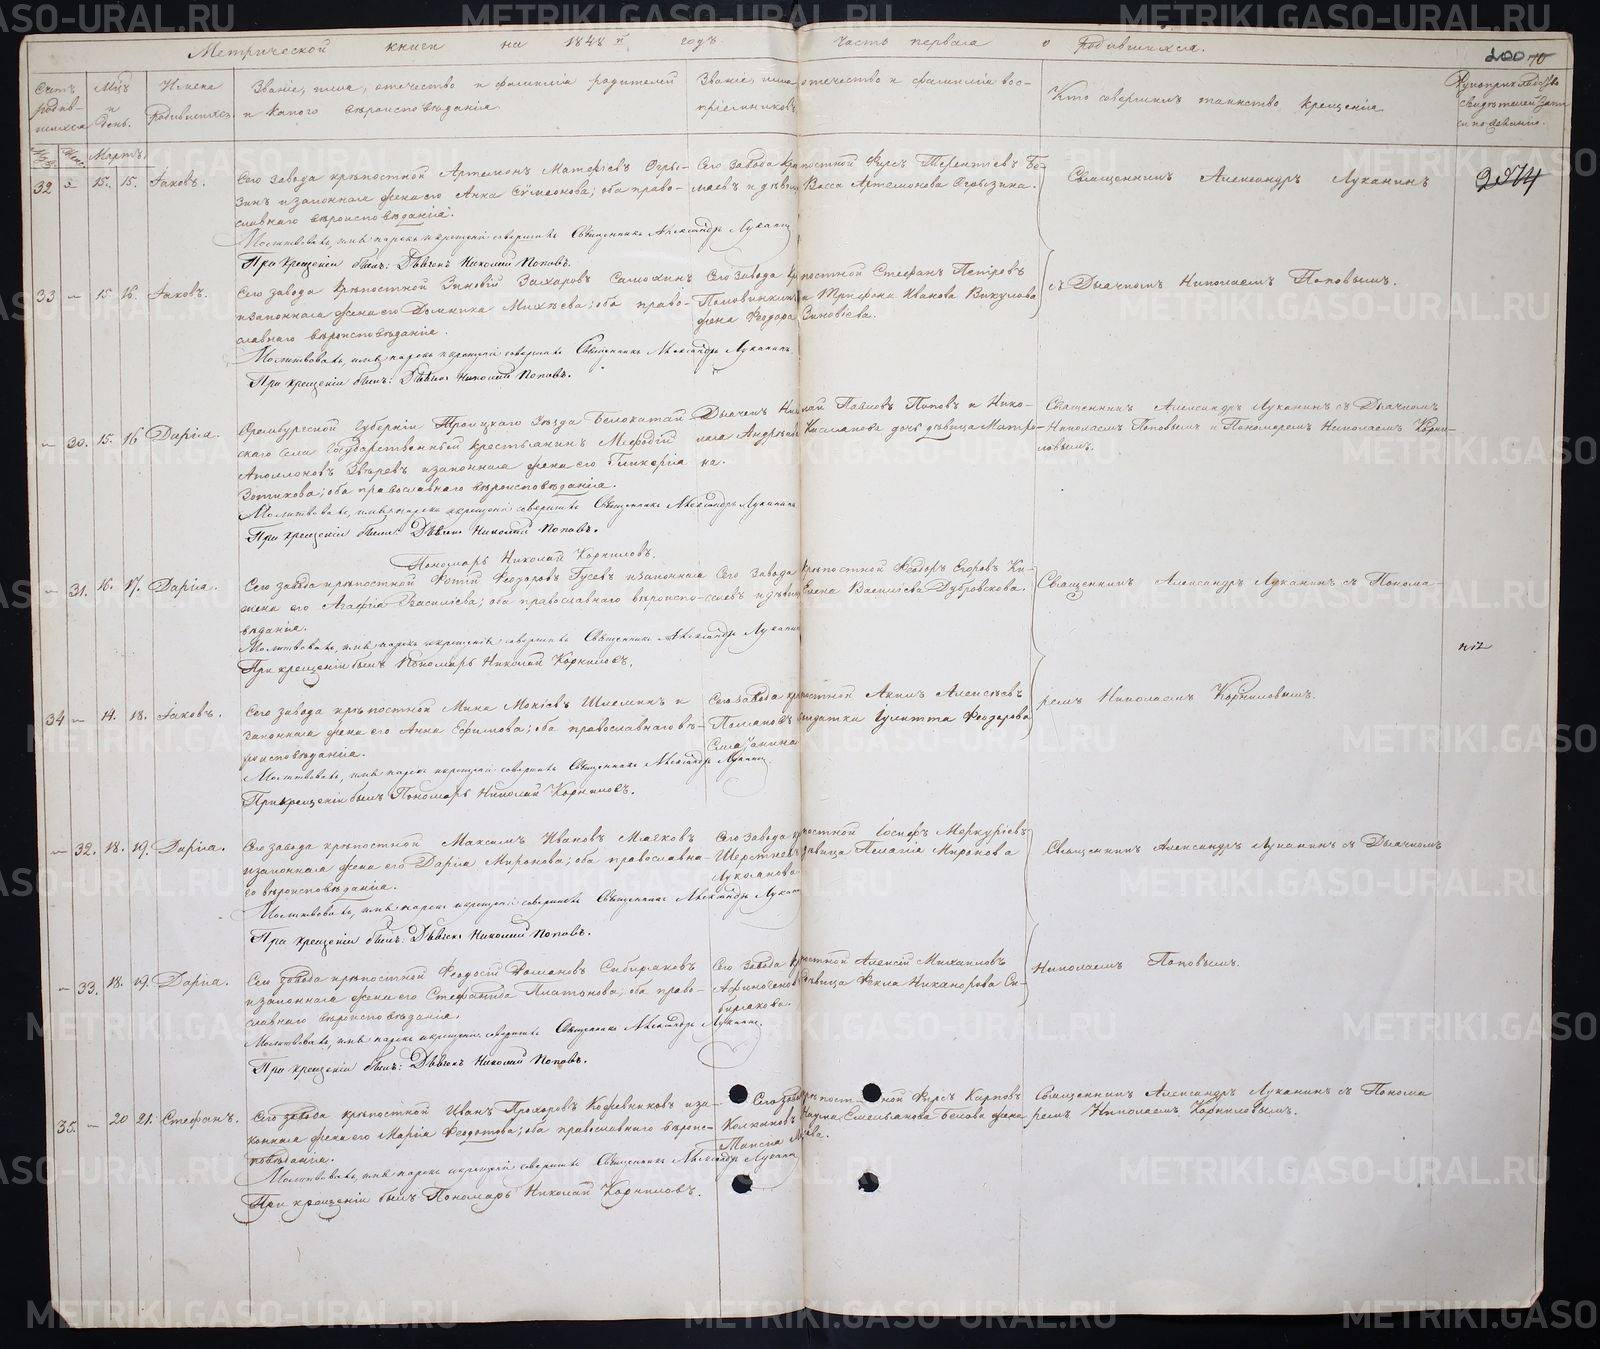 Метрической книги на 1848й годъ часть первая о Родившихся.
200 70
Счетъ родив-шихся
Мцъ и день.
Имена Родившихся.
Званіе, имя, отечество и фамилія родителей
и какого вѣроисповѣданія.
Званіе, имя, отечество и фамилія вос-
пріемниковъ
Кто совершилъ таинство крещенія
Мартъ.
32 15. 15. Іаковъ.
Сего завода крѣпостной Артемонъ Матѳіевъ
и законная жена его Анна Сѵмеонова; оба право-
славнаго вѣроисповѣданія.
Молитвовалъ, имя нарекъ и крещеніе совершилъ Священникъ Александръ Луканинъ
При крещеніи былъ: Дьячекъ Николай Поповъ.
Сего завода крѣпостной Фирсъ Терентіевъ
и дѣвица Васса Артемонова
Священникъ Александръ Луканинъ
2374
33 15. 16. Іаковъ.
Сего завода крѣпостной Зиновій Захаровъ Самохинъ
и законная жена его Домника Михѣева; оба право-
славнаго вѣроисповѣданія.
Молитвовалъ, имя нарекъ и крещеніе совершилъ Священникъ Александръ Луканинъ.
При крещеніи былъ: Дьячекъ Николай Поповъ.
Сего завода крѣпостной Стефанъ Петровъ
Половинкинъ и Трифона Иванова Викулова
жена Ѳеодора Зиновіева.
съ Дьячкомъ Николаемъ Поповымъ.
30. 15. 16 Дарія.
Оренбургской Губерніи Троицкаго Уѣзда Белокатай-
скаго села Государственный крестьянинъ Меѳодій
Аполлоновъ Звѣревъ и законная жена его Гликерія
Зотикова; оба православнаго вѣроисповѣданія.
Молитвовалъ, имя нарекъ и крещеніе совершилъ Священникъ Александръ Луканинъ
При крещеніи были: Дьячекъ Николай Поповъ.
Пономарь Николай Корниловъ.
Дьячекъ Николай Павловъ Поповъ и Нико-
лая Андреева Кисляковa дочь дѣвица Матро-
на.
Священникъ Александръ Луканинъ съ Дьячкомъ
Николаемъ Поповымъ и Пономаремъ Николаемъ Корни-
ловымъ.
31. 16. 17. Дарія.
Сего завода крѣпостной Фотій Ѳеодоровъ Гусевъ и законная
жена его Агафія Василіева; оба православнаго вѣроиспо-
вѣданія.
Молитвовалъ, имя нарекъ и крещеніе совершилъ Священникъ Александръ Луканинъ
При крещеніи былъ Пономарь Николай Корниловъ.
Сего завода крѣпостной Ѳеодоръ Егоровъ Ки-
селевъ и дѣвица Елена Василіева Дубровскова.
Священникъ Александръ Луканинъ съ Понома-
34 14. 18. Іаковъ.
Сего завода крѣпостной Мина Мокіевъ Шлемкинъ и
законная жена его Анна Ефимова; оба православнаго вѣ-
роисповѣданія.
Молитвовалъ, имя нарекъ и крещеніе совершилъ Священникъ Александръ Луканинъ
При крещеніи былъ Пономарь Николай Корниловъ.
Сего завода крѣпостной Акимъ Алексѣевъ
солдатка Іулитта Ѳеодорова
ремъ Николаемъ Корниловымъ.
32. 18. 19. Дарія.
Сего завода крѣпостной Максимъ Ивановъ Маяковъ
и законная жена его Дарія Миронова; оба православна-
го вѣроисповѣданія.
Молитвовалъ, имя нарекъ и крещеніе совершилъ Священникъ Александръ Луканинъ
При крещеніи былъ: Дьячекъ Николай Поповъ.
Сего завода крѣпостной Іосифъ Меркуріевъ
Шерстневъ дѣвица Пелагія Миронова
Лукоянова.
Священникъ Александръ Луканинъ съ Дьячкомъ
33. 18. 19. Дарія.
Сего завода крѣпостной Ѳеодосій Романовъ Сибиряковъ
и законная жена его Стефанида Платонова; оба право-
славнаго вѣроисповѣданія.
Молитвовалъ, имя нарекъ и крещеніе совершилъ Священникъ Александръ Луканинъ.
При крещеніи былъ: Дьячекъ Николай Поповъ.
Сего завода крѣпостной Алексій Михаиловъ
дѣвица Ѳекла Никанорова Си-
бирякова.
Николаемъ Поповымъ.
35. 20 21. Стефанъ.
Сего завода крѣпостной Иванъ Прохоровъ Кожевниковъ и за-
конная жена его Марія Ѳеодотова; оба православнаго вѣроис-
повѣданія.
Молитвовалъ, имя нарекъ и крещеніе совершилъ Священникъ Александръ Луканинъ
При крещеніи былъ Пономарь Николай Корниловъ.
Сего завода крѣпостной Фирсъ Карповъ
Наума Емельянова Белова жена
Священникъ Александръ Луканинъ съ Понома
ремъ Николаемъ Корниловымъ.
METRIKI.GASO-URAL.RU